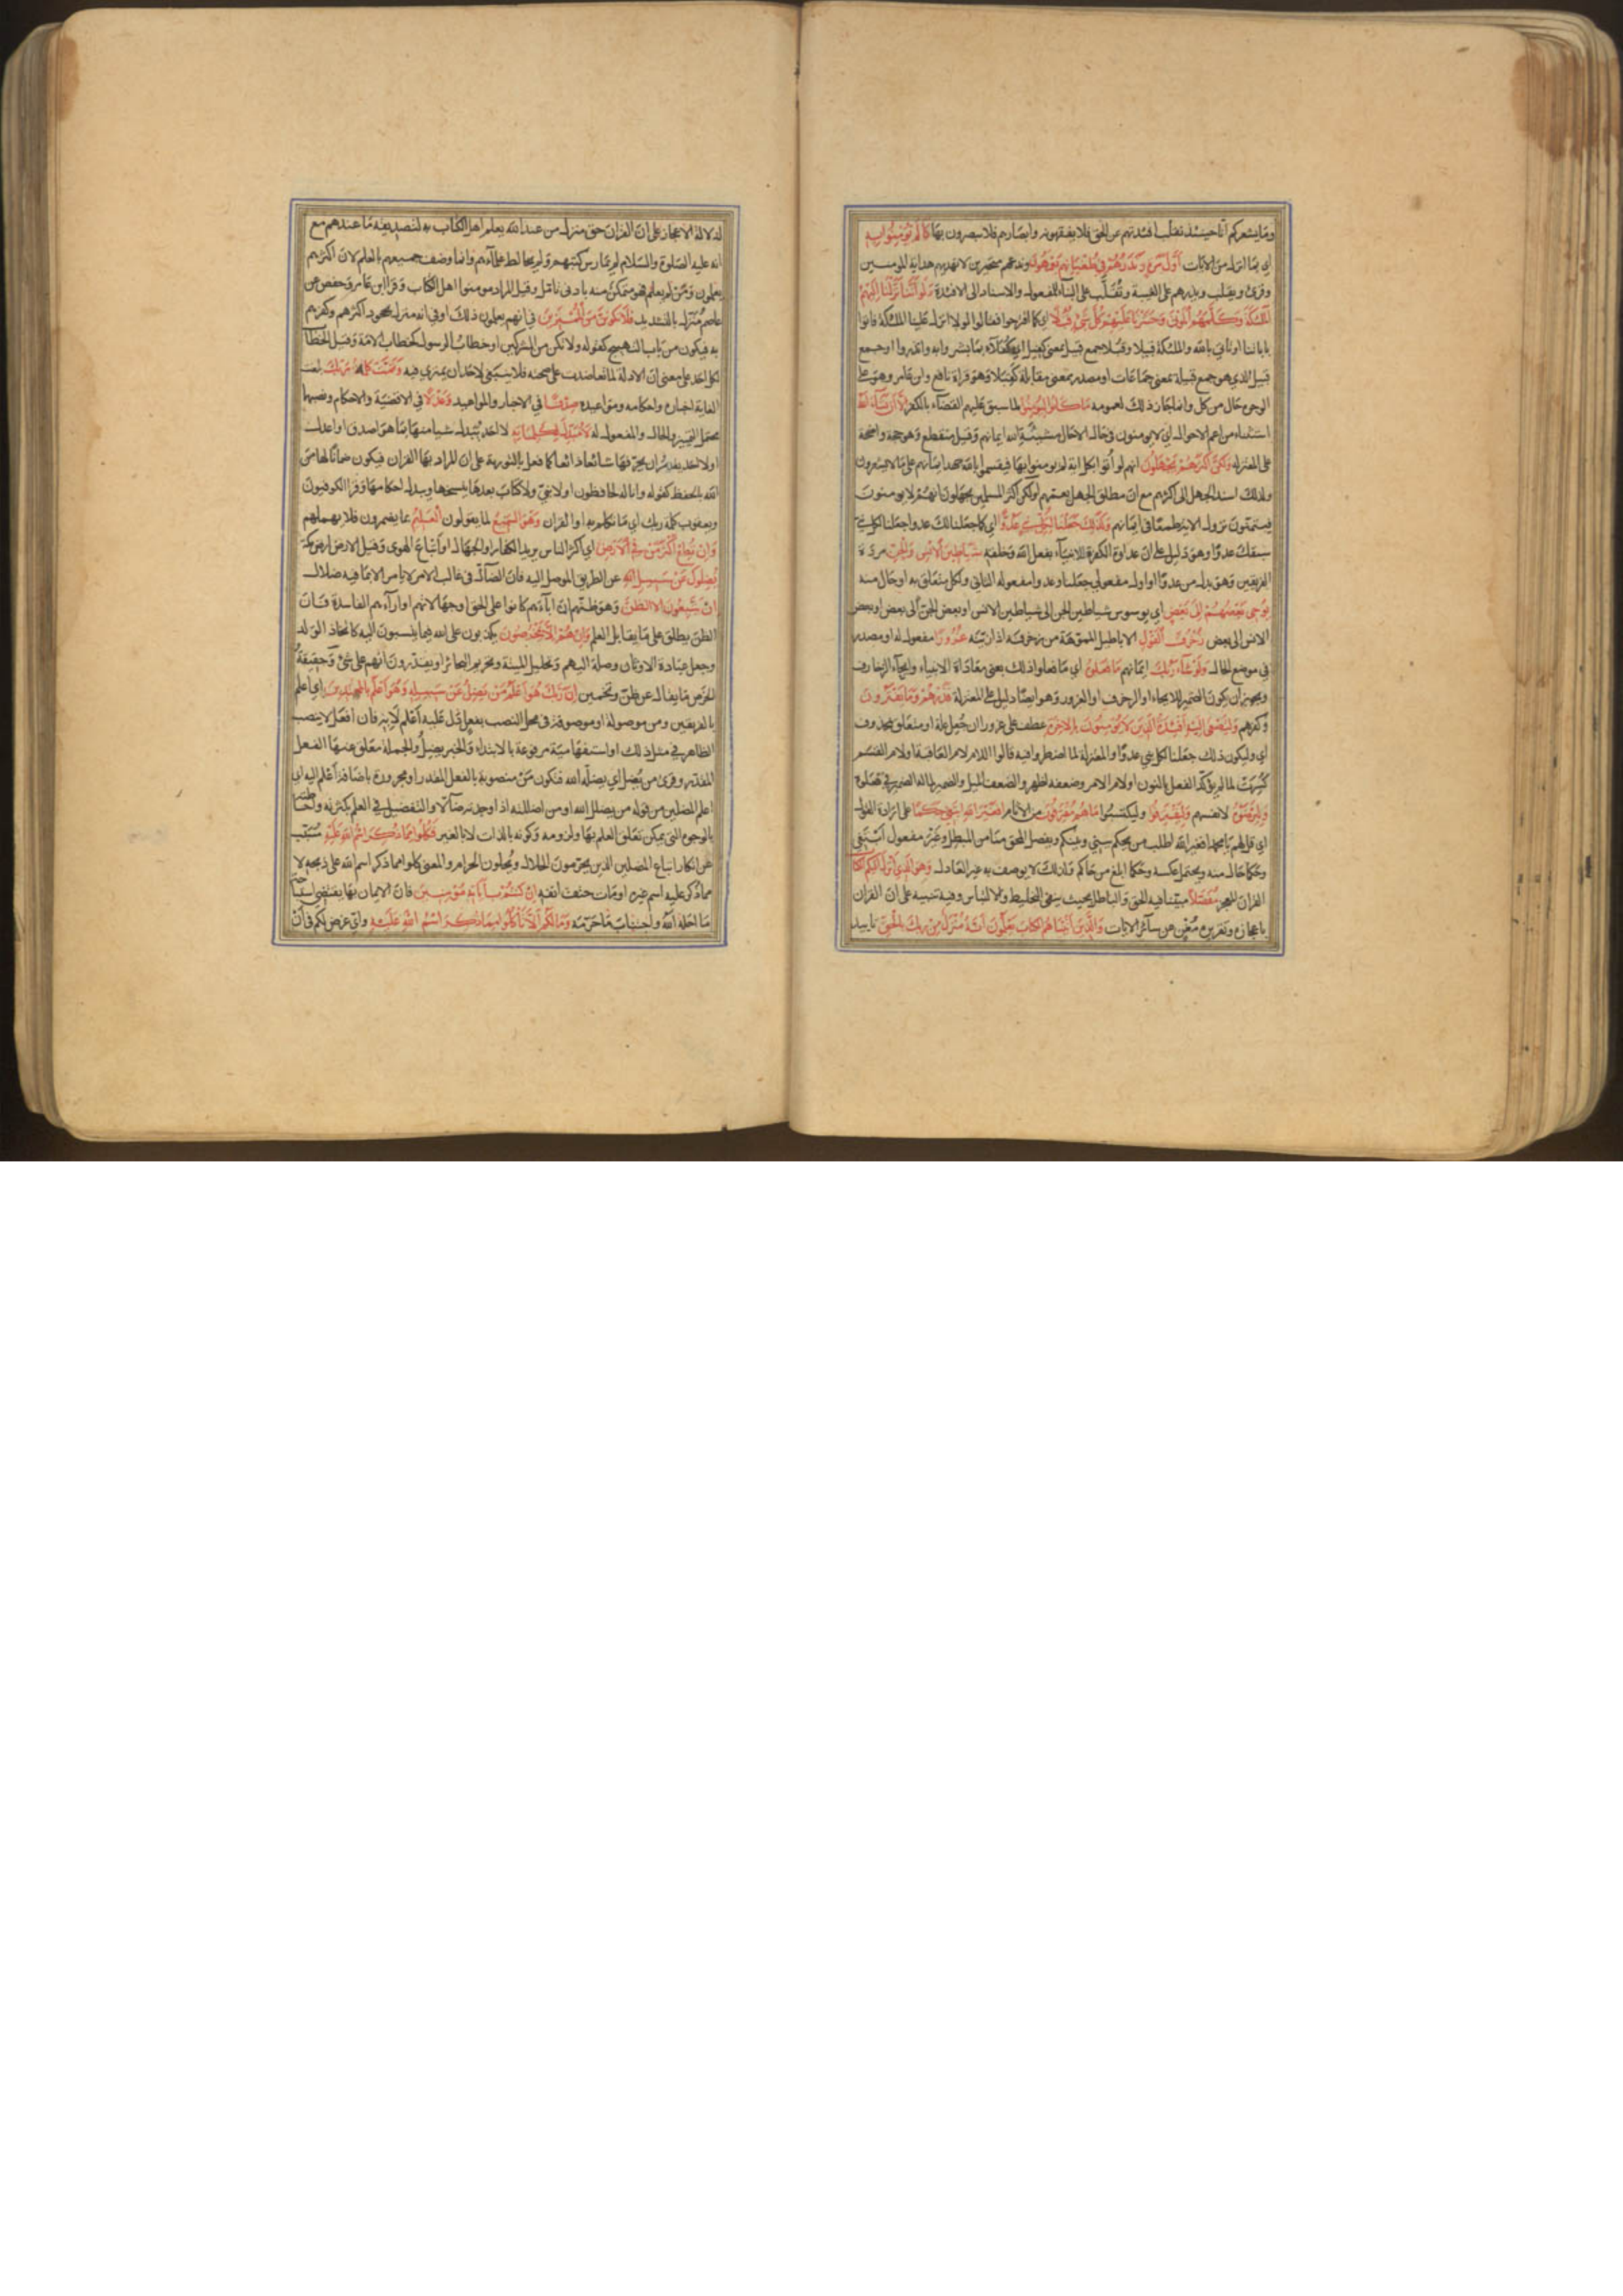 وما يشعركم انا حينئذ نقلب افئدتهم عن الحق فلا يفقهونه وابصارهم فلا يبصرون بها كَمَا لَمْ يُؤْمِنُوا بِهِ
اي بما انزل من الايات أَوَّلَ مَرَّةٍ وَنَذَرُهُمْ فِي طُغْيَانِهِمْ يَعْمَهُونَ وندعهم متحيرين لا نهديهم هداية المومنين
وقرئ ويقلب ويذرهم على الغيبة وتُقَلَّب على البناء للمفعول والاسناد الى الافئدة وَلَوْ أَنَّنَا نَزَّلْنَا إِلَيْهِمُ
الْمَلٰئِكَةَ وَكَلَّمَهُمُ الْمَوْتَى وَحَشَرْنَا عَلَيْهِمْ كُلَّ شَيْءٍ قُبُلًا اي كما اقترحوا فقالوا لولا انزل علينا الملئكة فاتوا
باباننا او تاتي بالله والملئكة قبيلا وقبلا جمع قبيل بمعنى كفيل اي كفلاء بما بشروا به وانذروا او جمع
قبيل الذي هو جمع قبيلة بمعنى جماعات او مصدر بمعنى مقابلة كقِبَلا وهو قراة نافع وابن عامر وهو على
الوجوه حال من كل وانما جاز ذلك لعمومه مَا كَانُوا لِيُؤْمِنُوا لما سبق عليهم القضاء بالكفر إِلَّا أَنْ يَشَاءَ اللَّهُ
استثناء من اعم الاحوال اي لا يومنون في حال الا حال مشيئة الله ايمانهم وقيل منقطع وهو حجة واضحة
على المعتزلة وَلٰكِنَّ أَكْثَرَهُمْ يَجْهَلُونَ انهم لو أُتوا بكل اية لم يومنوا بها فيقسموا بالله جهد ايمانهم على ما لا يشعرون
ولذلك اسند الجهل الى اكثرهم مع ان مطلق الجهل يعمهم او لكن اكثر المسلمين يجهلون انهم لا يومنون
فيتمنون نزول الاية طمعا في ايمانهم وَكَذٰلِكَ جَعَلْنَا لِكُلِّ نَبِيٍّ عَدُوًّا اي كما جعلنا لك عدوا جعلنا لكل نبي
سبقك عدوا وهو دليل على ان عداوة الكفرة للانبياء بفعل الله وخلقه شَيَاطِينَ الْإِنْسِ وَالْجِنِّ مردة
الفريقين وهو بدل من عدوا او اول مفعولي جعلنا وعدوا مفعوله الثاني ولكل متعلق به او حال منه
يُوحِي بَعْضُهُمْ إِلَى بَعْضٍ اي يوسوس شياطين الجن الى شياطين الانس او بعض الجن الى بعض او بعض
الانس الى بعض زُخْرُفَ الْقَوْلِ الاباطيل المموهة من زخرفه اذا زينه غُرُورًا مفعول له او مصدر
في موضع الحال وَلَوْ شَاءَ رَبُّكَ ايمانهم مَا فَعَلُوهُ اي ما فعلوا ذلك يعني معاداة الانبياء وايحاء الزخارف
ويجوز ان يكون الضمير للايحاء او الزخرف او الغرور وهو ايضا دليل على المعتزلة فَذَرْهُمْ وَمَا يَفْتَرُونَ
وكفرهم وَلِتَصْغَى إِلَيْهِ أَفْئِدَةُ الَّذِينَ لَا يُؤْمِنُونَ بِالْآخِرَةِ عطف على غرورا ان جُعل علة او متعلق بمحذوف
اي وليكون ذلك جعلنا لكل نبي عدوا والمعتزلة لما اضطروا فيه قالوا اللام لام العاقبة او لام القسم
كُسِرَتْ لما لم يؤكد الفعل بالنون او لام الامر وضعفه اظهر والصغو الميل والضمير لما له الضمير في فعلوه
وَلِيَرْضَوْهُ لانفسهم وَلِيَقْتَرِفُوا وليكتسبوا مَا هُمْ مُقْتَرِفُونَ من الاثام أَفَغَيْرَ اللَّهِ أَبْتَغِي حَكَمًا على ارادة القول
اي قل لهم يا محمد افغير الله اطلب من يحكم بيني وبينكم ويفصل المحق منا من المبطل وغير مفعول ابتغي
وحكما حال منه ويحتمل عكسه وحكما ابلغ من حاكم ولذلك لا يوصف به غير العادل وَهُوَ الَّذِي أَنْزَلَ إِلَيْكُمُ الْكِتَابَ
القران المعجز مُفَصَّلًا مبينا فيه الحق والباطل بحيث ينفي التخليط والالتباس وفيه تنبيه على ان القران
باعجازه وتقريره مُغْنٍ عن سائر الايات وَالَّذِينَ آتَيْنَاهُمُ الْكِتَابَ يَعْلَمُونَ أَنَّهُ مُنَزَّلٌ مِنْ رَبِّكَ بِالْحَقِّ تاييد
لدلالة الاعجاز على ان القران حق منزل من عند الله يعلم اهل الكتاب به لتصديقه ما عندهم مع
انه عليه الصلوة والسلام لم يمارس كتبهم ولم يخالط علماءهم وانما وصف جميعهم بالعلم لان اكثرهم
يعلمون ومن لم يعلم فهو متمكن منه بادنى تامل وقيل المراد مومنوا اهل الكتاب وقرا ابن عامر وحفص عن
عاصم مُنَزَّل بالتشديد فَلَا تَكُونَنَّ مِنَ الْمُمْتَرِينَ في انهم يعلمون ذلك او في انه منزل بجحود اكثرهم وكفرهم
به فيكون من باب التهييج كقوله ولا تكونن من المشركين او خطاب الرسول كخطاب الامة وقيل الخطاب
لكل احد على معنى ان الادلة لما تعاضدت على صحته فلا ينبغي لاحد ان يمتري فيه وَتَمَّتْ كَلِمَةُ رَبِّكَ بلغت
الغاية اخباره واحكامه ومواعيده صِدْقًا في الاخبار والمواعيد وَعَدْلًا في الاقضية والاحكام ونصبهما
يحتمل التمييز والحال والمفعول له لَا مُبَدِّلَ لِكَلِمَاتِهِ لا احد يُبَدل شيا منها بما هو اصدق او اعدل
او لا احد يقدر ان يحرفها شائعا ذائعا كما فعل بالتورية على ان المراد بها القران فيكون ضمانا لها من
الله بالحفظ كقوله وانا له لحافظون او لا نبي ولا كتاب بعدها ينسخها ويبدل احكامها وقرا الكوفيون
ويعقوب كلمة ربك اي ما تكلم به او القران وَهُوَ السَّمِيعُ لما يقولون الْعَلِيمُ بما يضمرون فلا يهملهم
وَإِنْ تُطِعْ أَكْثَرَ مَنْ فِي الْأَرْضِ اي اكثر الناس يريد الكفار او الجهال او اتباع الهوى وقيل الارض ارض مكة
يُضِلُّوكَ عَنْ سَبِيلِ اللَّهِ عن الطريق الموصل اليه فان الضال في غالب الامر لا يامر الا بما فيه ضلال
إِنْ يَتَّبِعُونَ إِلَّا الظَّنَّ وهو ظنهم ان اباءهم كانوا على الحق او جهالاتهم او اراءهم الفاسدة فان
الظن يطلق على ما يقابل العلم وَإِنْ هُمْ إِلَّا يَخْرُصُونَ يكذبون على الله فيما ينسبون اليه كاتخاذ الولد
وجعل عبادة الاوثان وصلة اليه وتحليل الميتة وتحريم البحائر او يقدرون انهم على شيء وحقيقة
الخرص ما يقال عن ظن وتخمين إِنَّ رَبَّكَ هُوَ أَعْلَمُ مَنْ يَضِلُّ عَنْ سَبِيلِهِ وَهُوَ أَعْلَمُ بِالْمُهْتَدِينَ اي اعلم
بالفريقين ومن موصولة او موصوفة في محل النصب بفعل دل عليه اعلم لا به فان افعل لا ينصب
الظاهر في مثل ذلك او استفهامية مرفوعة بالابتداء والخبر يضل والجملة معلق عنها الفعل
المقدر وقرئ من يُضل اي يضله الله فتكون من منصوبة بالفعل المقدر او مجرورة باضافة اعلم اليه اي
اعلم المضلين من قوله من يضلل الله او من اضللته اذا وجدته ضالا والتفضيل في العلم بكثرته واحاطته
بالوجوه التي يمكن تعلق العلم بها ولزومه وكونه بالذات لا بالغير فَكُلُوا مِمَّا ذُكِرَ اسْمُ اللَّهِ عَلَيْهِ مسبب
عن انكار اتباع المضلين الذين يحرمون الحلال ويحلون الحرام والمعنى كلوا مما ذكر اسم الله على ذبحه لا
مما ذكر عليه اسم غيره او مات حتف انفه إِنْ كُنْتُمْ بِآيَاتِهِ مُؤْمِنِينَ فان الايمان بها يقتضي استباحة
ما احله الله واجتناب ما حرمه وَمَا لَكُمْ أَلَّا تَأْكُلُوا مِمَّا ذُكِرَ اسْمُ اللَّهِ عَلَيْهِ واي غرض لكم في ان